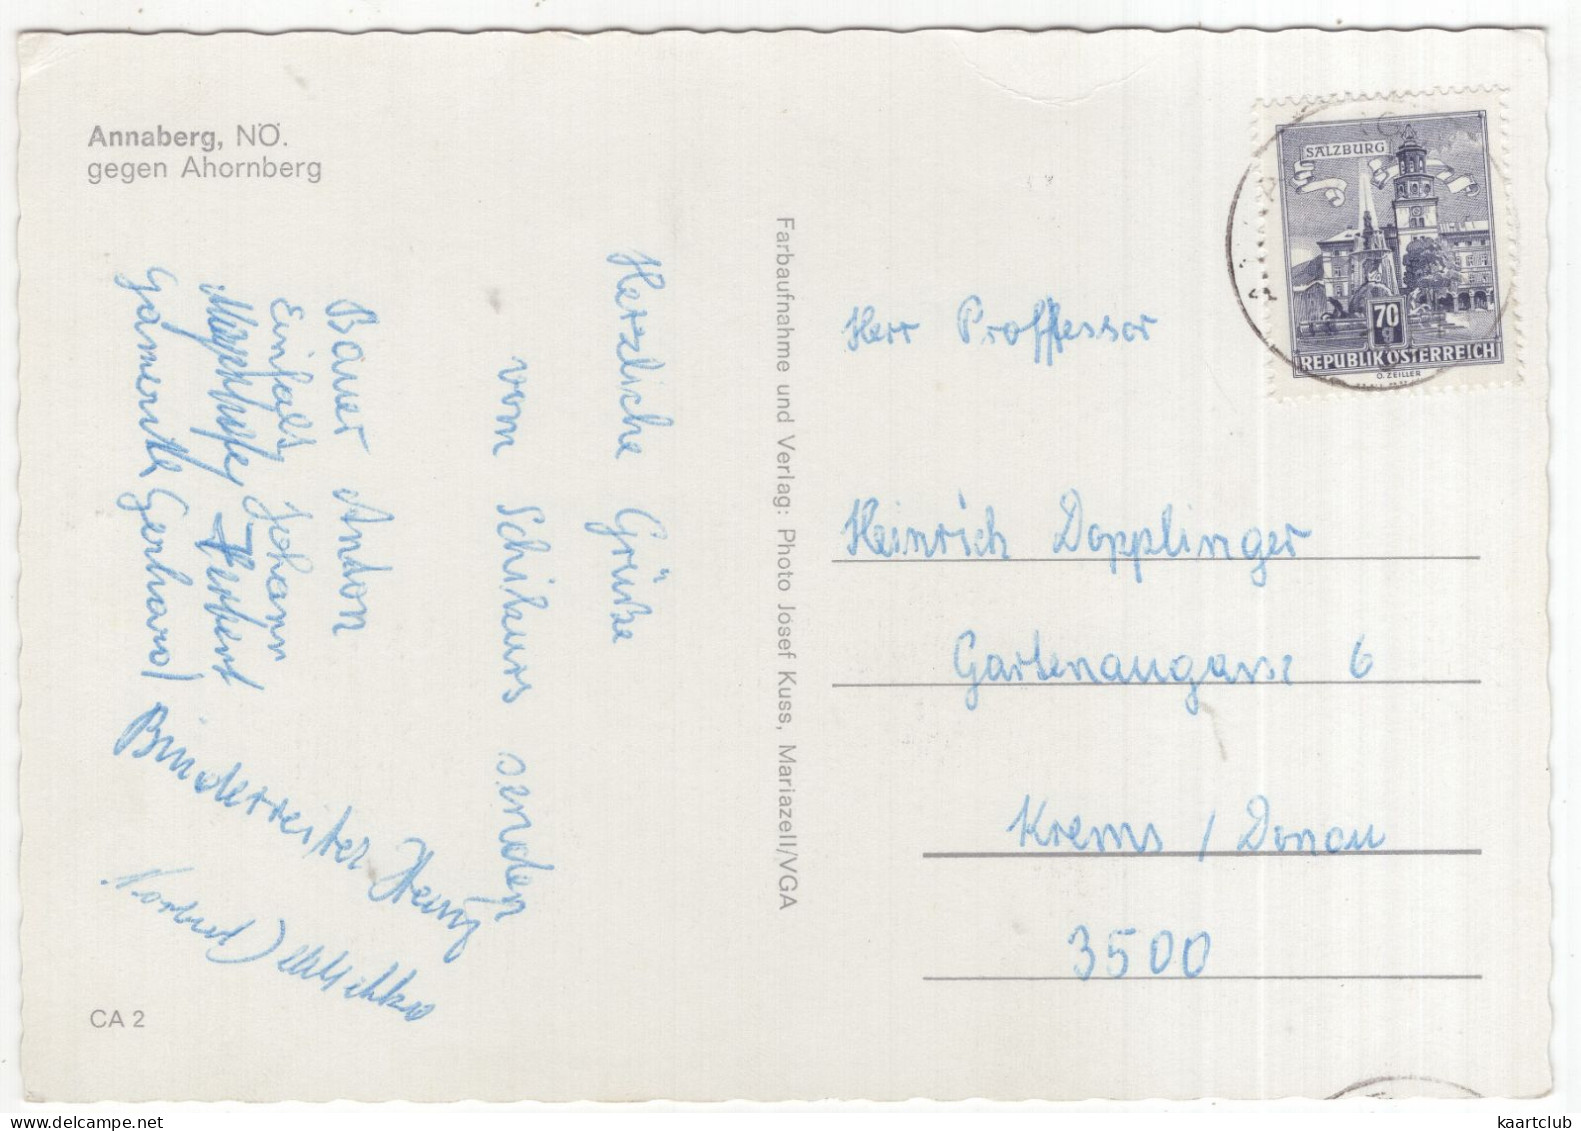 Annaberg, NÖ.
gegen Ahornberg
Herzliche Grüße
vom Schikurs senden
Bauer Andon
Einfalt Johann
Herbert
Gamerith Gerhard
Binderreiter Heinz
CA 2
Farbaufnahme und Verlag: Photo Josef Kuss, Mariazell/VGA
SALZBURG
70
g
REPUBLIK ÖSTERREICH
O. ZEILLER
Herr Proffessor
Heinrich Dopplinger
Gartenaugasse 6
Krems / Donau
3500
www.delcampe.net
kaartclub